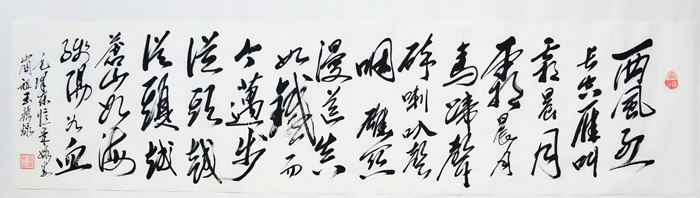 西風烈
长空雁叫
霜晨月
霜晨月
馬蹄聲
碎喇叭聲
咽雄关
漫道真
如鐵而
今邁步
從头越
從頭越
蒼山如海
残陽如血
毛澤东憶秦娥娄
山關